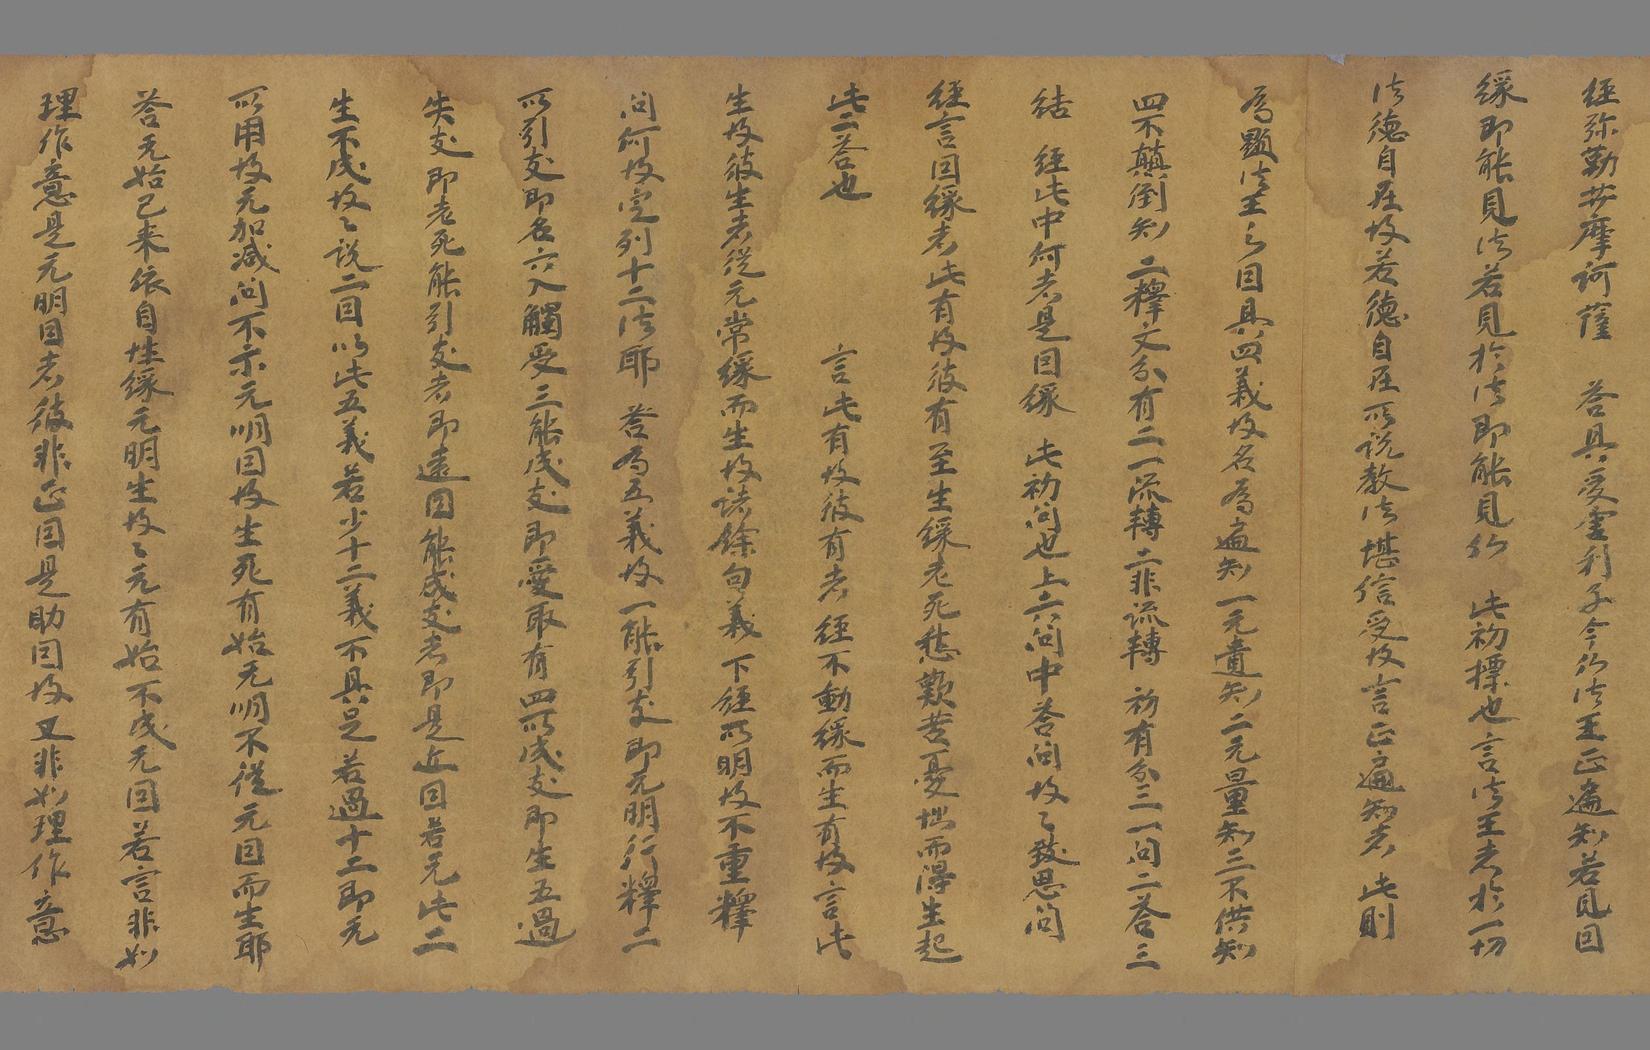 経弥勒菩摩訶薩　答具受舎利子今仏法王正遍知若見因
縁即能見法若見於法即能見仏　此初標也言法王者於一切
法徳自在故若徳自在所説教法堪信受故言正遍知者　此則
為顕法王之因具四義故名為遍知一无遺知二无量知三不供知
四不顛倒知　二釋文分有二一流轉二非流轉　初有分三一問二荅三
結　経此中何者是因縁　此初問也上六問中荅問故々致思問
経言因縁者此有故彼有至生縁老死愁歎苦憂惱而得生起
此二荅也　　　　言此有故彼有者経不動縁而生有故言此
生故彼生者従无常縁而生故諸餘句義　下経所明故不重釋
問何故定列十二法耶　荅為五義故一能引支即无明行釋二
所引支即名六入觸受三能成支即愛取有四所成支即生五過
失支即老死能引支者即遠因能成支者即是近因若无此二
生不成故々説二因以此五義若少十二義不具足若過十二即无
所用故无加減問不示无明因故生死有始无明不従无因而生耶
荅无始已来依自性縁无明生故々无有始不成无因若言非如
理作意是无明因者彼非正因是助因故又非如理作意